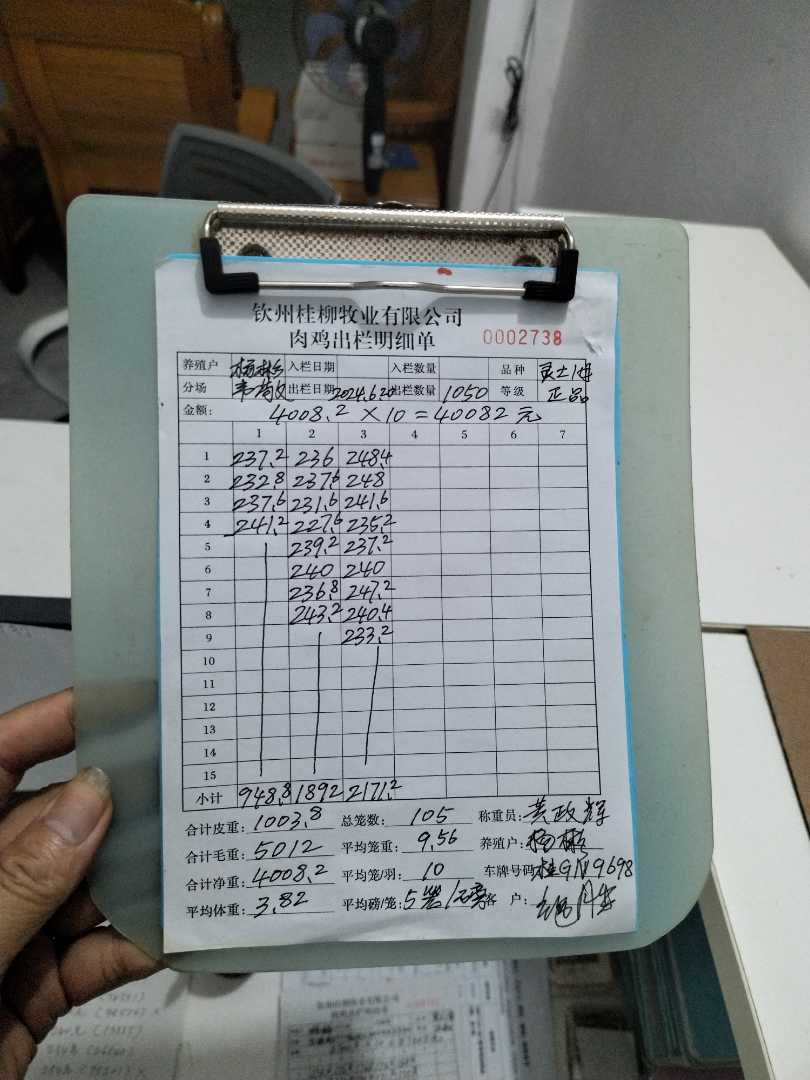 钦州桂柳牧业有限公司
肉鸡出栏明细单 0002738
养殖户 杨彬 入栏日期 入栏数量 品种
分场 出栏日期 2024.6.20 出栏数量 1050 等级 正品
金额: 4008.2 × 10 = 40082 元
1 2 3 4 5 6 7
1 237.2 236 248.4
2 232.8 237.6 248
3 237.6 231.6 241.6
4 241.2 227.6 235.2
5 239.2 237.2
6 240 240
7 236.8 247.2
8 243.2 240.4
9 233.2
10
11
12
13
14
15
小计 948.8 1892 2171.2
合计皮重: 1003.8 总笼数: 105 称重员: 黄政辉
合计毛重: 5012 平均笼重: 9.56 养殖户: 杨彬
合计净重: 4008.2 平均笼/羽: 10 车牌号码 桂G 9698
平均体重: 3.82 平均磅/笼: 5笼/磅 客户: